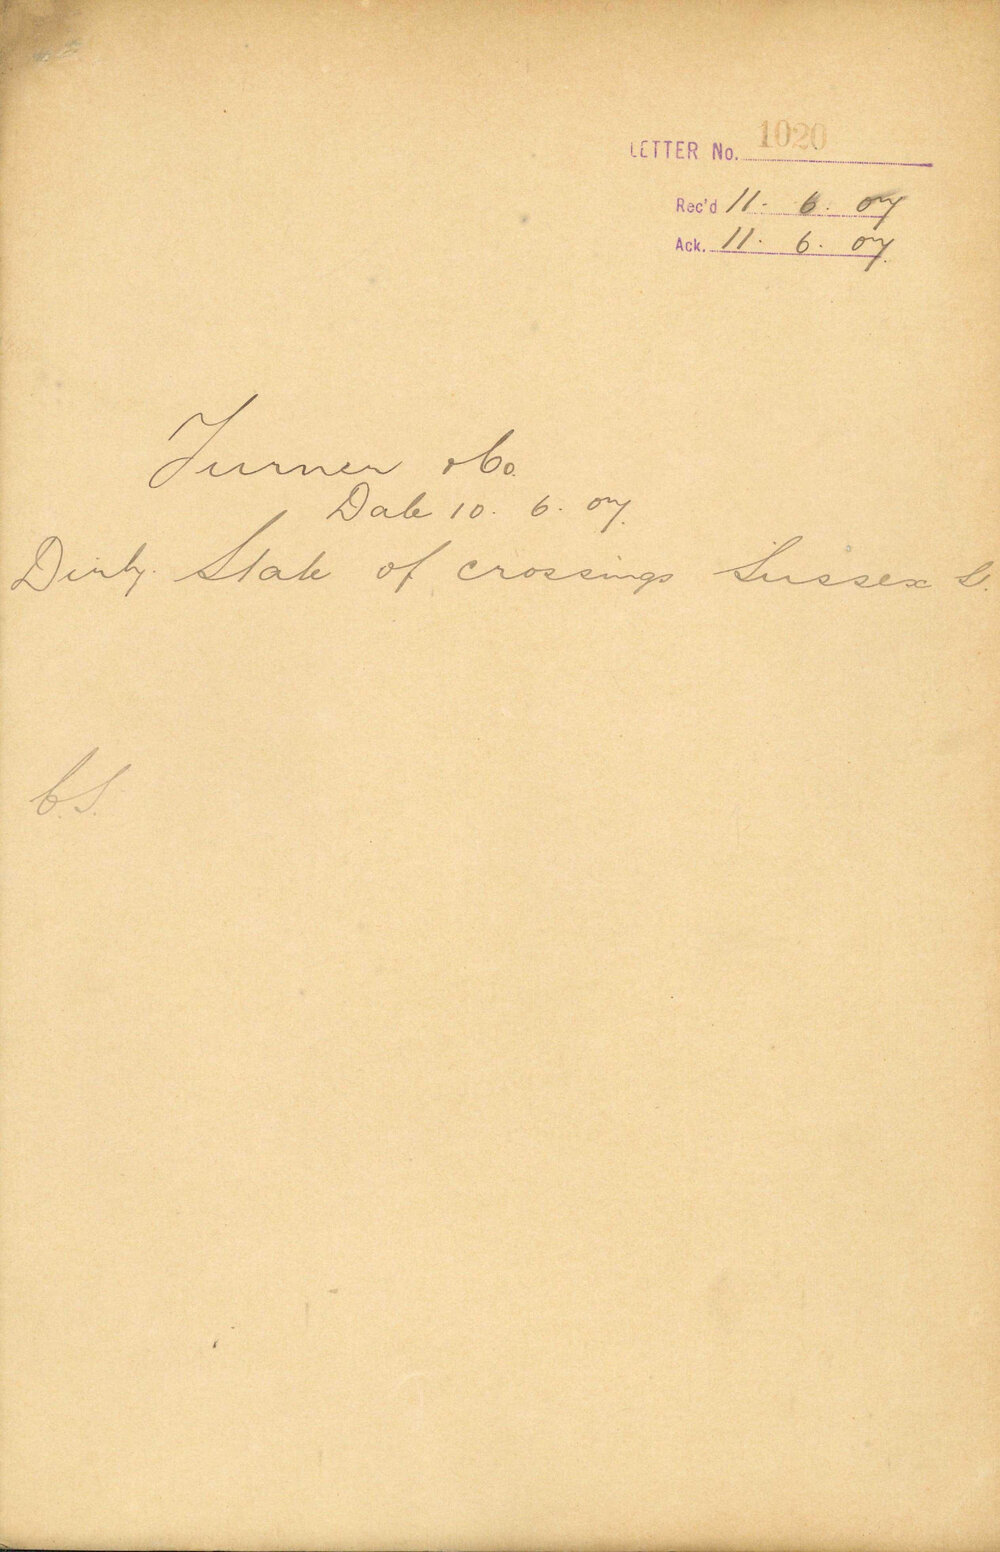 LETTER No. 1020
Rec'd 11. 6. 07
Ack. 11. 6. 07.
Turner & Co.
Date 10. 6. 07.
Dirty State of crossings Sussex St.
C.S.